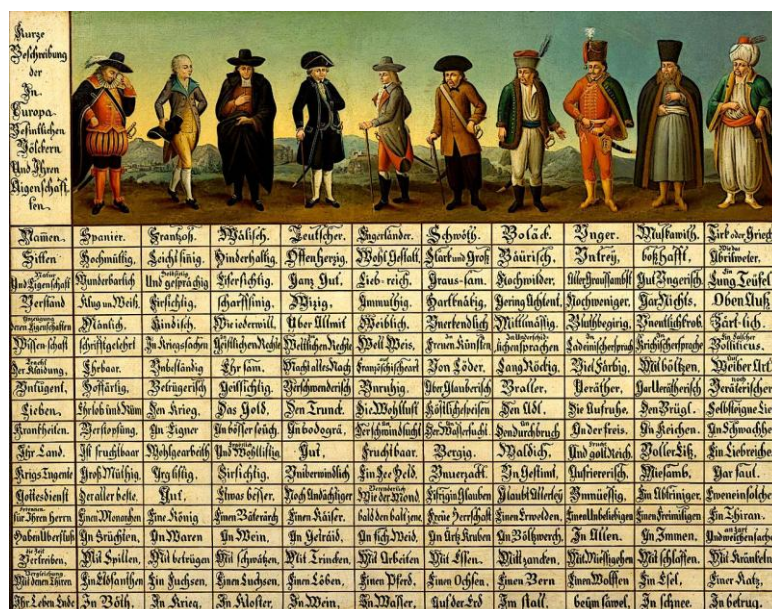 Kurze
Beschreibung
der
In
Europa
Befintlichen
Völckern
Und Ihren
Aigenschaff
ten.
Namen. Spanier. Frantzoß. Wälisch. Teutscher. Engerländer. Schwöth. Boläck. Unger. Muskawith. Tirk oder Griech
Sitten Hochmüttig. Leicht sinig. Hinderhaltig. Offenherzig. Wohl Gestalt. Starck und Groß Bäurisch. Untrey. boßhafft. Wie das Abrilweter.
Natur Und Eigenschaft Wunderbarlich Holdseelig Und gesprächig Eifersichtig. Ganz Gut. Lieb-reich. Graus-sam. Hochwilder. Aller Graussambst. Gut Ungerisch. Ein Lung Teüfel
Verstand Klug un Weiß. Firsichtig. scharffsinig. Witzig. Ammuthig. Hartknätig. Gering Achtent. Nochweniger. Gar Nichts. Oben Auß
Anzeugung deren Eigenschaften Mänlich. Kindisch. Wie iederwill. Über Allmit Weiblich. Unerkendlich Mittlmässig. Bluthbegirig. Unentlichkrob. Zärt-lich.
Wissenschaft schriftgelehrt In Kriegssachen Geistlichen Rechte Weltlichen Rechte Welt Weis. Freuen Künsten In Underschidlichen sprachen In Ladeinischersprach Krichischersprache Ein Falscher Bolliticus.
Tracht Der Klaidung. Ehrbaar. Unbeständig Ehrsam. Macht alles Nach Französischeart Von Löder. Lang Röckig. Viel Färbig. Mit bölzen. Auf Weiber Art
Untugent. Hoffärtig. Betrügerisch Geillsichtig. Verschwenderisch Unruhig. Über Glauberisch Braller. Veräther. Gar Verätherisch noch Verätherischer
Lieben. Ehrlob und Rüm Den Krieg. Das Gold. Den Trunck. Die Wohllust Köstlichespeisen Den Adl. Die Aufruhe. Den Brügl. Selbsteigne Lieb
Krankheiten. Verstopfung. An Eigner An bösser seüch. An bodogrä. An Der schwindsucht An Der Wassersucht. An Den durchbruch An der freis. An Keichen. An Schwachheit
Ihr Land. Ist fruchtbaar Wohlgearbeith Ergözlich Und Wohllistig Gut. Fruchtbaar. Bergig. Waldich. Frucht Und gollt Reich. Voller Eiß. Ein Liebreiches
Krigs Tugente Groß Müthig. Arg listig. Firsichtig. Unüberwindlich Ein See Held. Unverzackt. Un Gestimt. Aufriererisch. Miesamb. Gar faul.
Gottesdienst Der aller beste. Gut. Etwas besser. Noch Andächtiger Veränderlich Wie der Mond. Eifrig in Glauben Glaubt Allerley Unmüessig. Ein Abtriniger. Eweneinsolcher
Erkennen für Ihren Herrn Einen Monarchen Eine König Einen Bäterärch Einen Käiser. bald den bald jene. Freüe Herrschaft Einen Erwelden. Einen Unbeliebigen Einen Freiwilligen Ein Thiran.
Haben Überfluß An Früchten. An Waren An Wein. An Geträid. An fich Weid. An Ärtz Kruben An Böltzwerch. In Allen. In Immen. An zart Und weichen sachen
Die Zeit Vertreiben. Mit Spillen. Mit betrügen Mit schwätzen. Mit Trincken. Mit Arbeiten Mit Essen. Mit zancken. Mit Miessigehen Mit schlaffen. Mit Kränkeln
Vergleichung Mit denen Thiren Ein Elofanthen Ein Fuchsen. Einen Luchsen. Einen Löben. Einen Pferd. Einen Ochsen. Einen Bern Einen Wolffen Ein Esel. Einer Katz.
Ihr Leben Ende In Böth. In Krieg. In Kloster. In Wein. In Wasser. Auf der Erd Im stall. beym sawel. In schnee. In betrug.